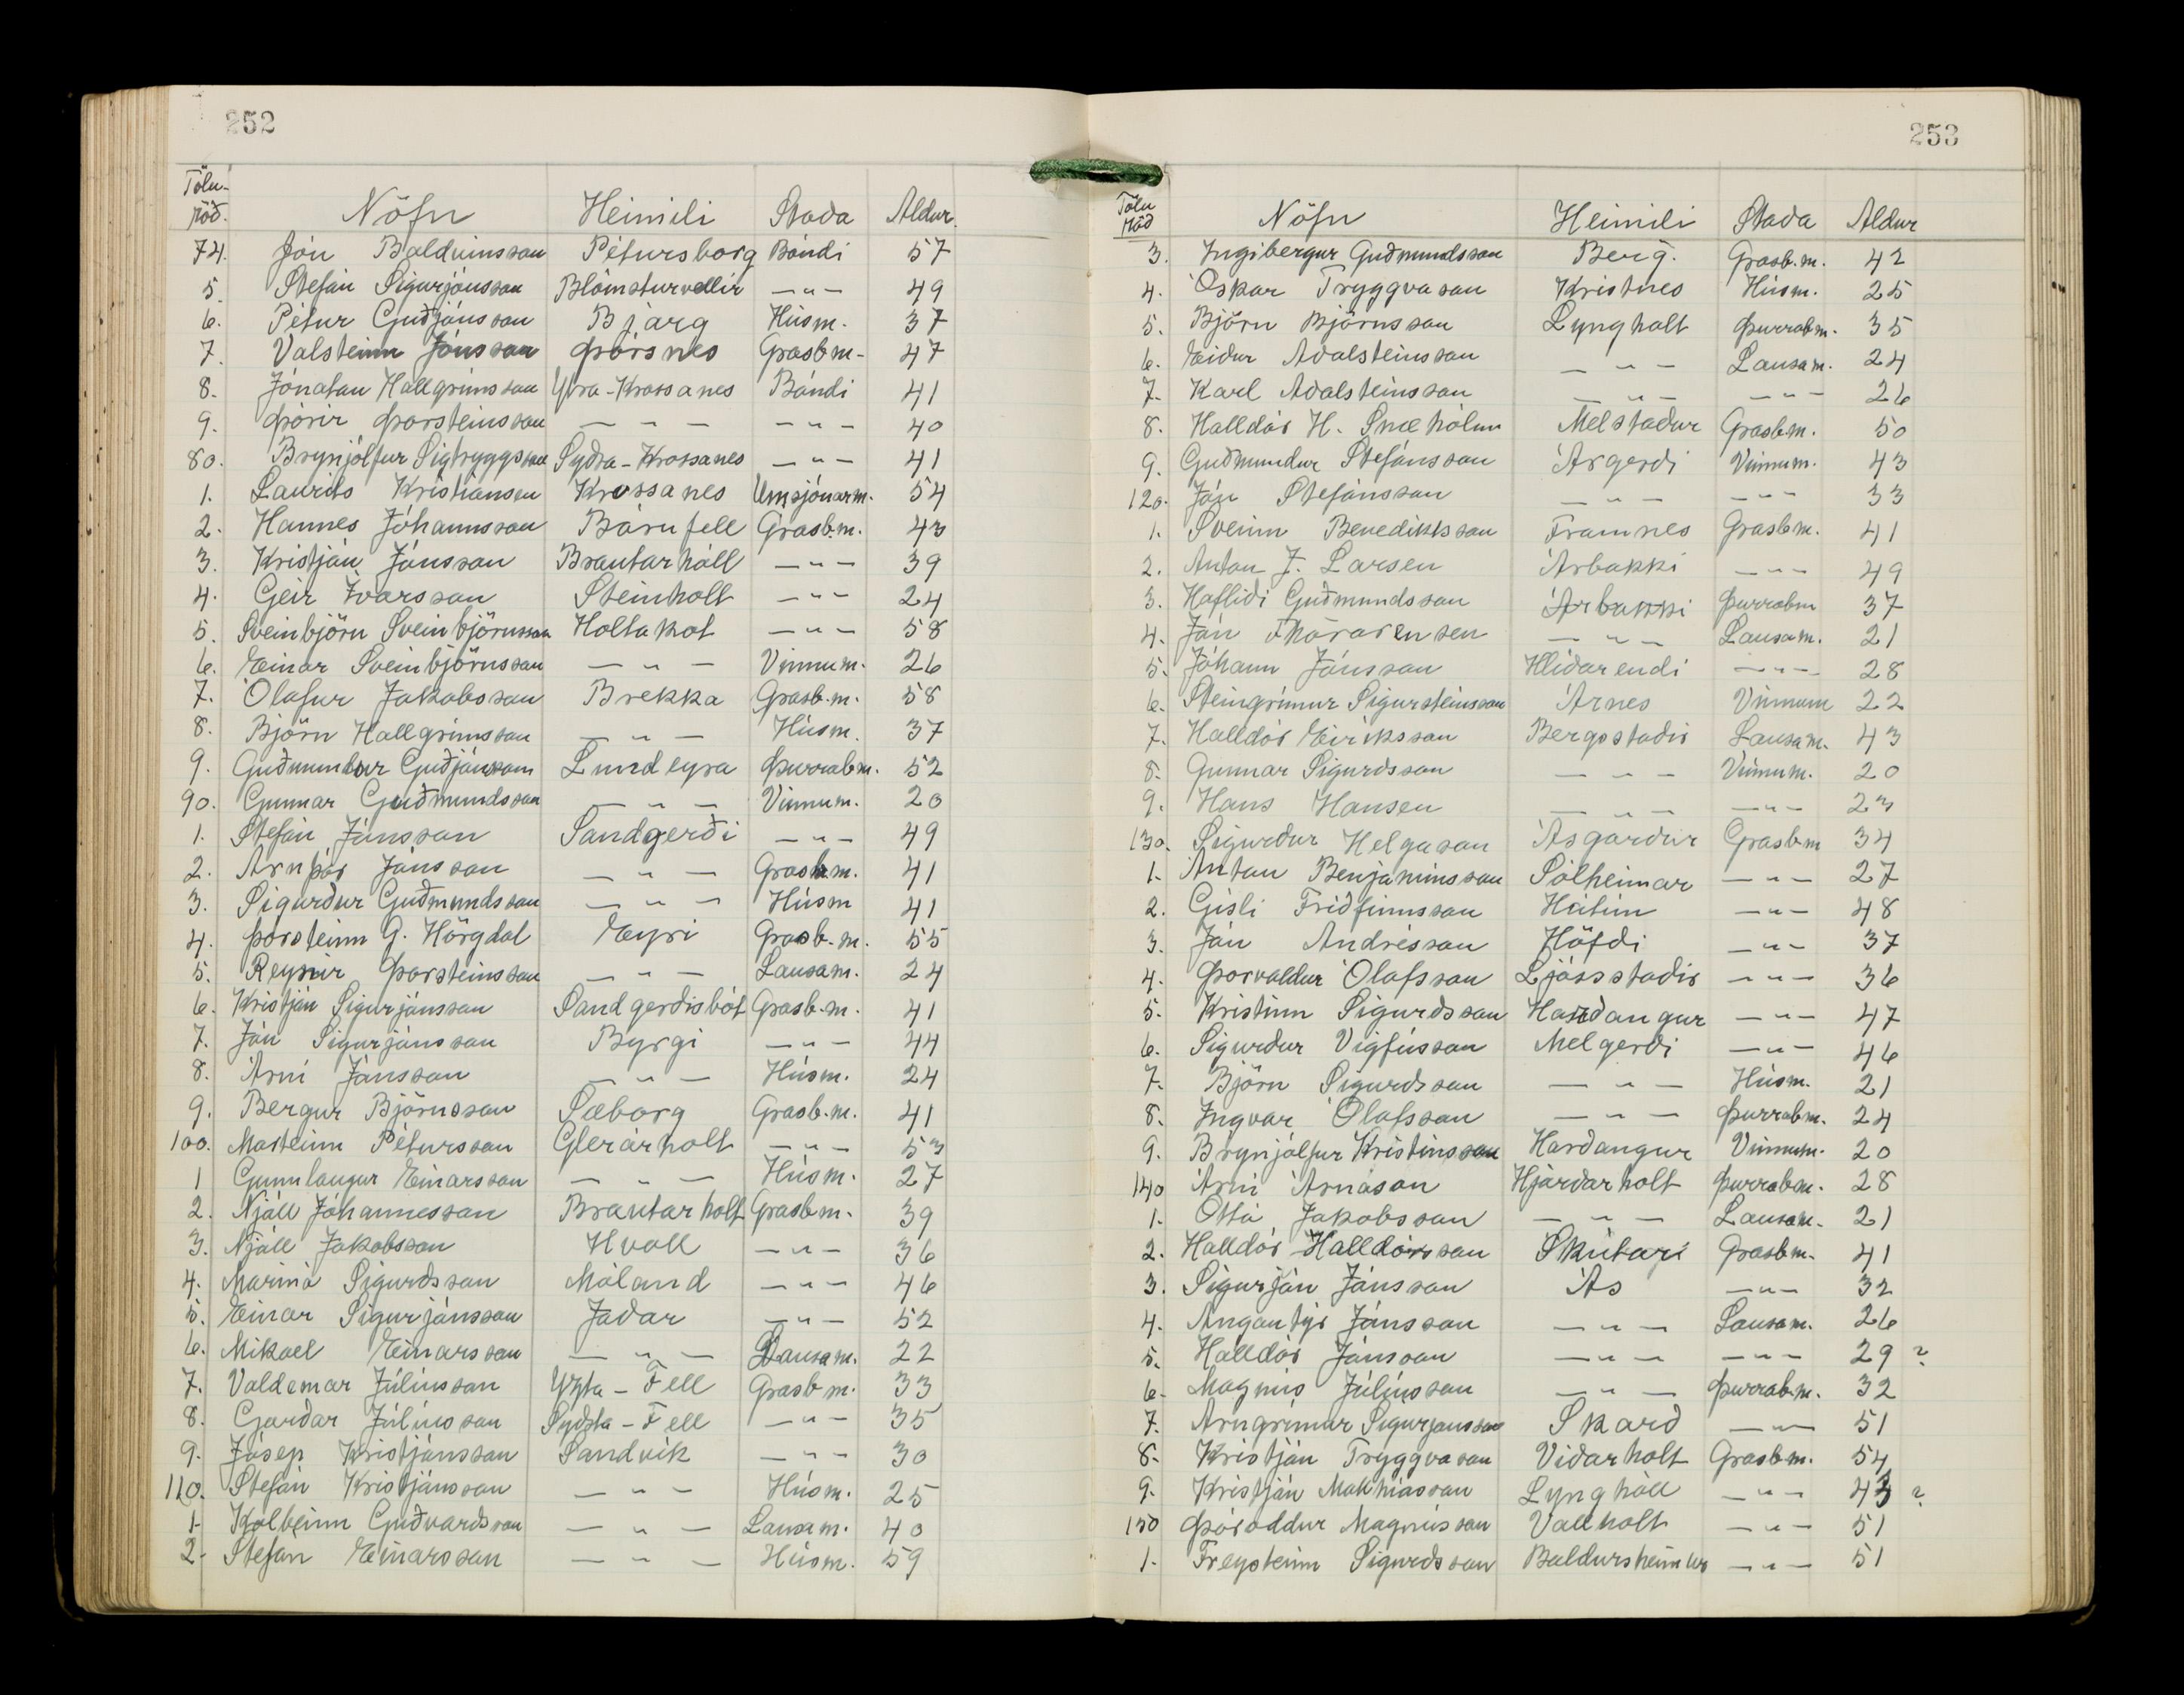 252
Tölu-
röð. Nöfn Heimili Staða Aldur.
74. Jón Balduinsson Pétursborg Bóndi 57
5. Stefán Sigurjónsson Blómsturvellir — " — 49
6. Pétur Guðjónsson Bjarg Húsm. 37
7. Valsteinn Jónsson Þórsnes Grasbm- 47
8. Jónatan Hallgrímsson Ytra-Krossanes Bóndi 41
9. Þórir Þorsteinsson — " — — " — 40
80. Brynjólfur Sigtryggsson Syðra-Krossanes — " — 41
1. Laurits Kristiansen Krossanes Umsjónarm. 54
2. Hannes Jóhannsson Bárufell Grasb.m. 43
3. Kristján Jónsson Brautarhóll — " — 39
4. Geir Ívarsson Steinholt — " — 24
5. Sveinbjörn Sveinbjörnsson Holtakot — " — 58
6. Einar Sveinbjörnsson — " — Vinnum. 26
7. Ólafur Jakobsson Brekka Grasb.m. 58
8. Björn Hallgrímsson — " — Húsm. 37
9. Guðmundur Guðjónsson Lundeyra Þurrabm. 52
90. Gunnar Guðmundsson — " — Vinnum. 20
1. Stefán Jónsson Sandgerði — " — 49
2. Arnþór Jónsson — " — Grasbm. 41
3. Sigurður Guðmundsson — " — Húsm 41
4. Þorsteinn G. Hörgdal Eyri Grasb.m. 55
5. Reynir Þorsteinsson — " — Lausam. 24
6. Kristján Sigurjónsson Sandgerðisbót Grasb.m. 41
7. Jón Sigurjónsson Byrgi — " — 44
8. Árni Jónsson — " — Húsm. 24
9. Bergur Björnsson Sæborg Grasb.m. 41
100. Marteinn Pétursson Glerárholt — " — 53
1 Gunnlaugur Einarsson — " — Húsm. 27
2. Njáll Jóhannesson Brautarholt Grasbm. 39
3. Njáll Jakobsson Hvoll — " — 36
4. Marinó Sigurðsson Móland — " — 46
5. Einar Sigurjónsson Jaðar — " — 52
6. Mikael Einarsson — " — Lausam. 22
7. Valdemar Júlíusson Yzta-Fell Grasbm. 33
8. Garðar Júlíusson Syðsta-Fell — " — 35
9. Jósep Kristjánsson Sandvík — " — 30
110. Stefán Kristjánsson — " — Húsm. 25
1. Kolbeinn Guðvarðsson — " — Lausam. 40
2. Stefán Einarsson — " — Húsm. 59
253
Tölu
röð Nöfn Heimili Staða Aldur
3. Ingibergur Guðmundsson Berg. Grasb.m. 42
4. Óskar Tryggvason Kristnes Húsm. 25
5. Björn Björnsson Lyngholt Þurrabm. 35
6. Eiður Aðalsteinsson — " — Lausam. 24
7. Karl Aðalsteinsson — " — — " — 26
8. Halldór H. Snæhólm Melstaður Grasbm. 50
9. Guðmundur Stefánsson Árgerði Vinnum. 43
120. Jón Stefánsson — " — — " — 33
1. Sveinn Benediktsson Framnes Grasbm. 41
2. Anton J. Larsen Árbakki — " — 49
3. Hafliði Guðmundsson Árbakki Þurrabm 37
4. Jón Thórarensen — " — Lausam. 21
5. Jóhann Jónsson Hlíðarendi — " — 28
6. Steingrímur Sigursteinsson Árnes Vinnum 22
7. Halldór Eiríksson Bergsstaðir Lausam. 43
8. Gunnar Sigurðsson — " — Vinnum. 20
9. Hans Hansen — " — — " — 23
130. Sigurður Helgason Ásgarður Grasbm 34
1. Anton Benjamínsson Sólheimar — " — 27
2. Gísli Friðfinnsson Hátún — " — 48
3. Jón Andrésson Höfði — " — 37
4. Þorvaldur Ólafsson Ljósstaðir — " — 36
5. Kristinn Sigurðsson Harðangur — " — 47
6. Sigurður Vigfússon Melgerði — " — 46
7. Björn Sigurðsson — " — Húsm. 21
8. Ingvar Ólafsson — " — Þurrabm. 24
9. Brynjólfur Kristinsson Harðangur Vinnum. 20
140 Árni Árnason Hjarðarholt Þurrabm. 28
1. Ottó Jakobsson — " — Lausam. 21
2. Halldór Halldórsson Skútar Grasbm. 41
3. Sigurjón Jónsson Ás — " — 32
4. Angantýr Jónsson — " — Lausam. 26
5. Halldór Jónsson — " — — " — 29 ?
6. Magnús Júlíusson — " — Þurrab.m. 32
7. Arngrímur Sigurjónsson Skarð — " — 51
8. Kristján Tryggvason Viðarholt Grasbm. 54
9. Kristján Matthíasson Lynghóll — " — 43 ?
150 Þóroddur Magnússon Vallholt — " — 51
1. Freysteinn Sigurðsson Baldursheimur — " — 51